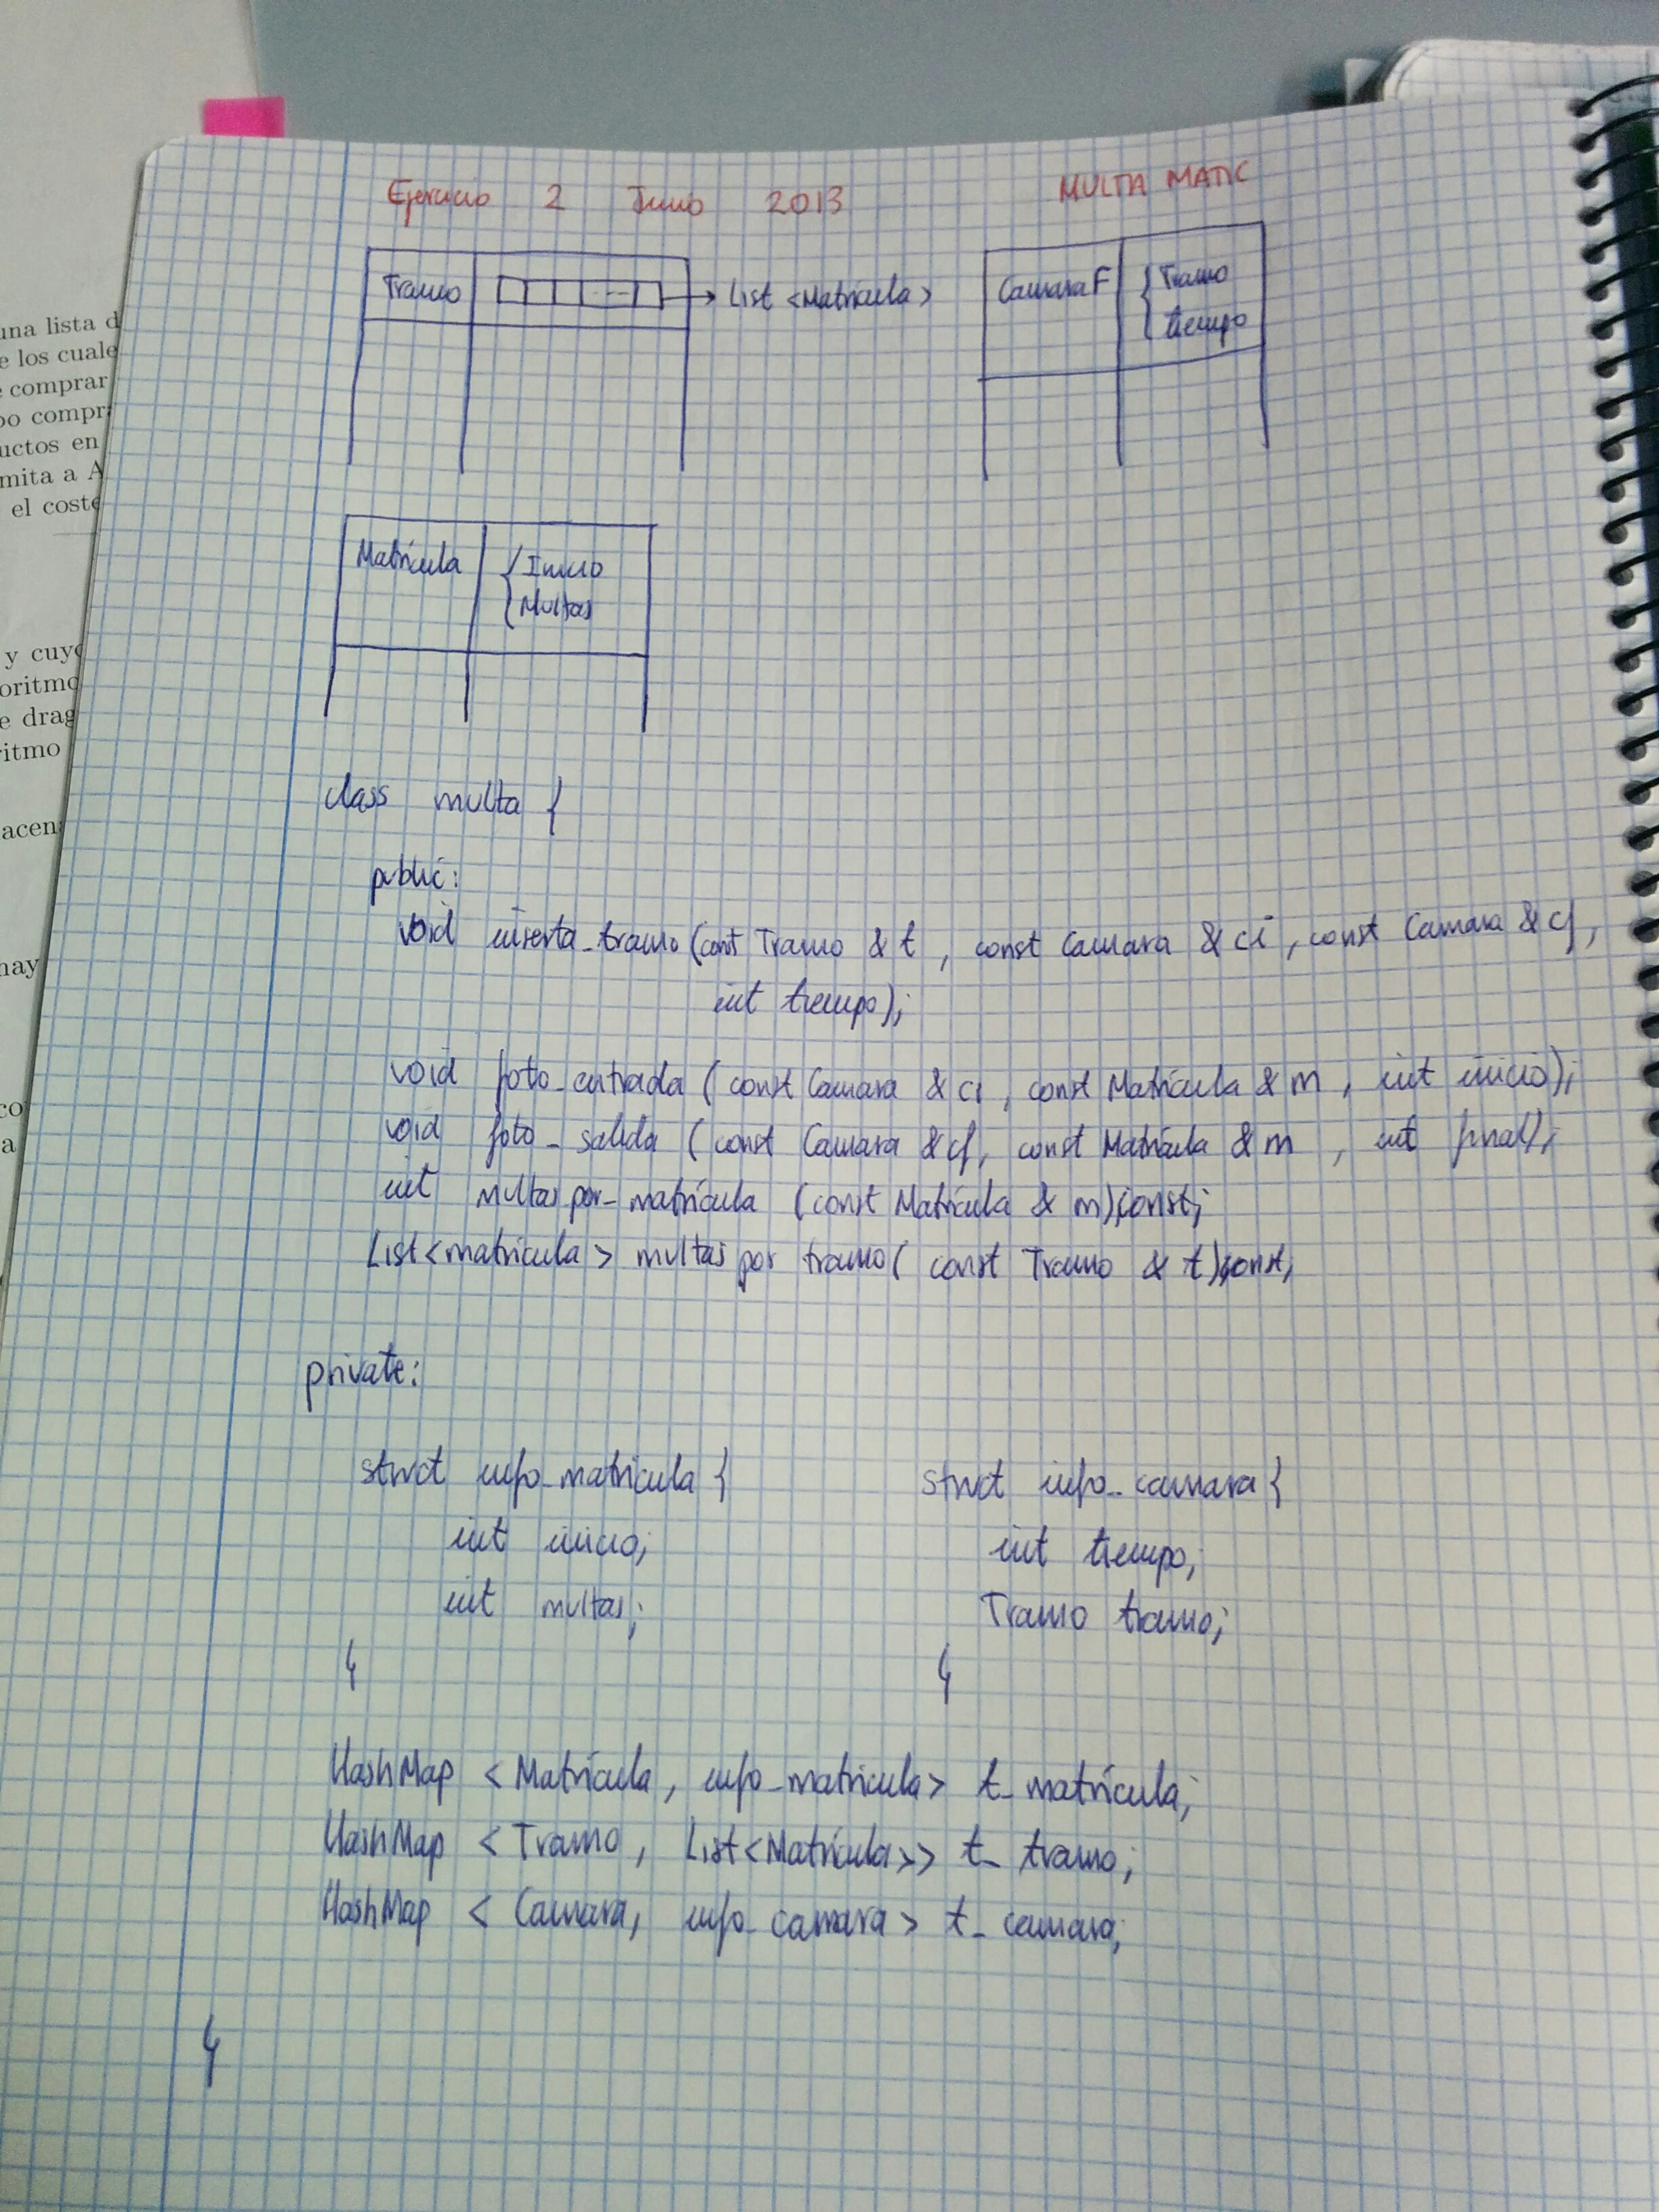 Ejercicio 2 Junio 2013 MULTA MATIC
Tramo → List <Matrícula>
CamaraF { Tramo
tiempo
Matrícula { Inicio
Multas
class multa {
public:
void inserta_tramo (const Tramo & t, const Camara & ci, const Camara & cf,
int tiempo);
void foto_entrada (const Camara & ci, const Matrícula & m, int inicio);
void foto_salida (const Camara & cf, const Matrícula & m, int final);
int multas_por_matrícula (const Matrícula & m) const;
List<matricula> multas por tramo( const Tramo & t) const;
private:
struct info_matricula {
int inicio;
int multas;
}
struct info_camara {
int tiempo;
Tramo tramo;
}
HashMap <Matrícula, info_matricula> t_matrícula;
HashMap <Tramo, List<Matrícula>> t_tramo;
HashMap <Camara, info_camara> t_camara;
}
una lista d
e los cuale
comprar
po compr
uctos en
mita a A
el coste
y cuyo
oritmo
e drag
ritmo
acena
hay
co
a